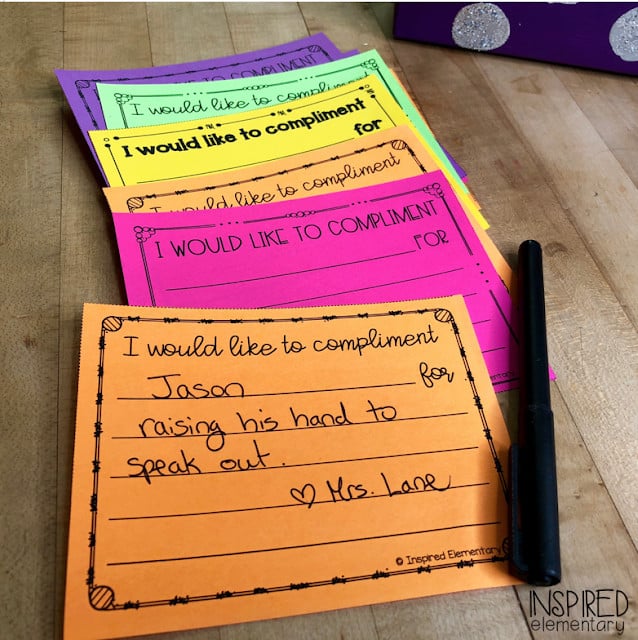 I WOULD LIKE TO COMPLIMENT
I would like to compliment
I would like to compliment
for
I would like to compliment
I WOULD LIKE TO COMPLIMENT
FOR
I would like to compliment
Jason for
raising his hand to
speak out.
♡ Mrs. Lane
© Inspired Elementary
INSPIRED
elementary